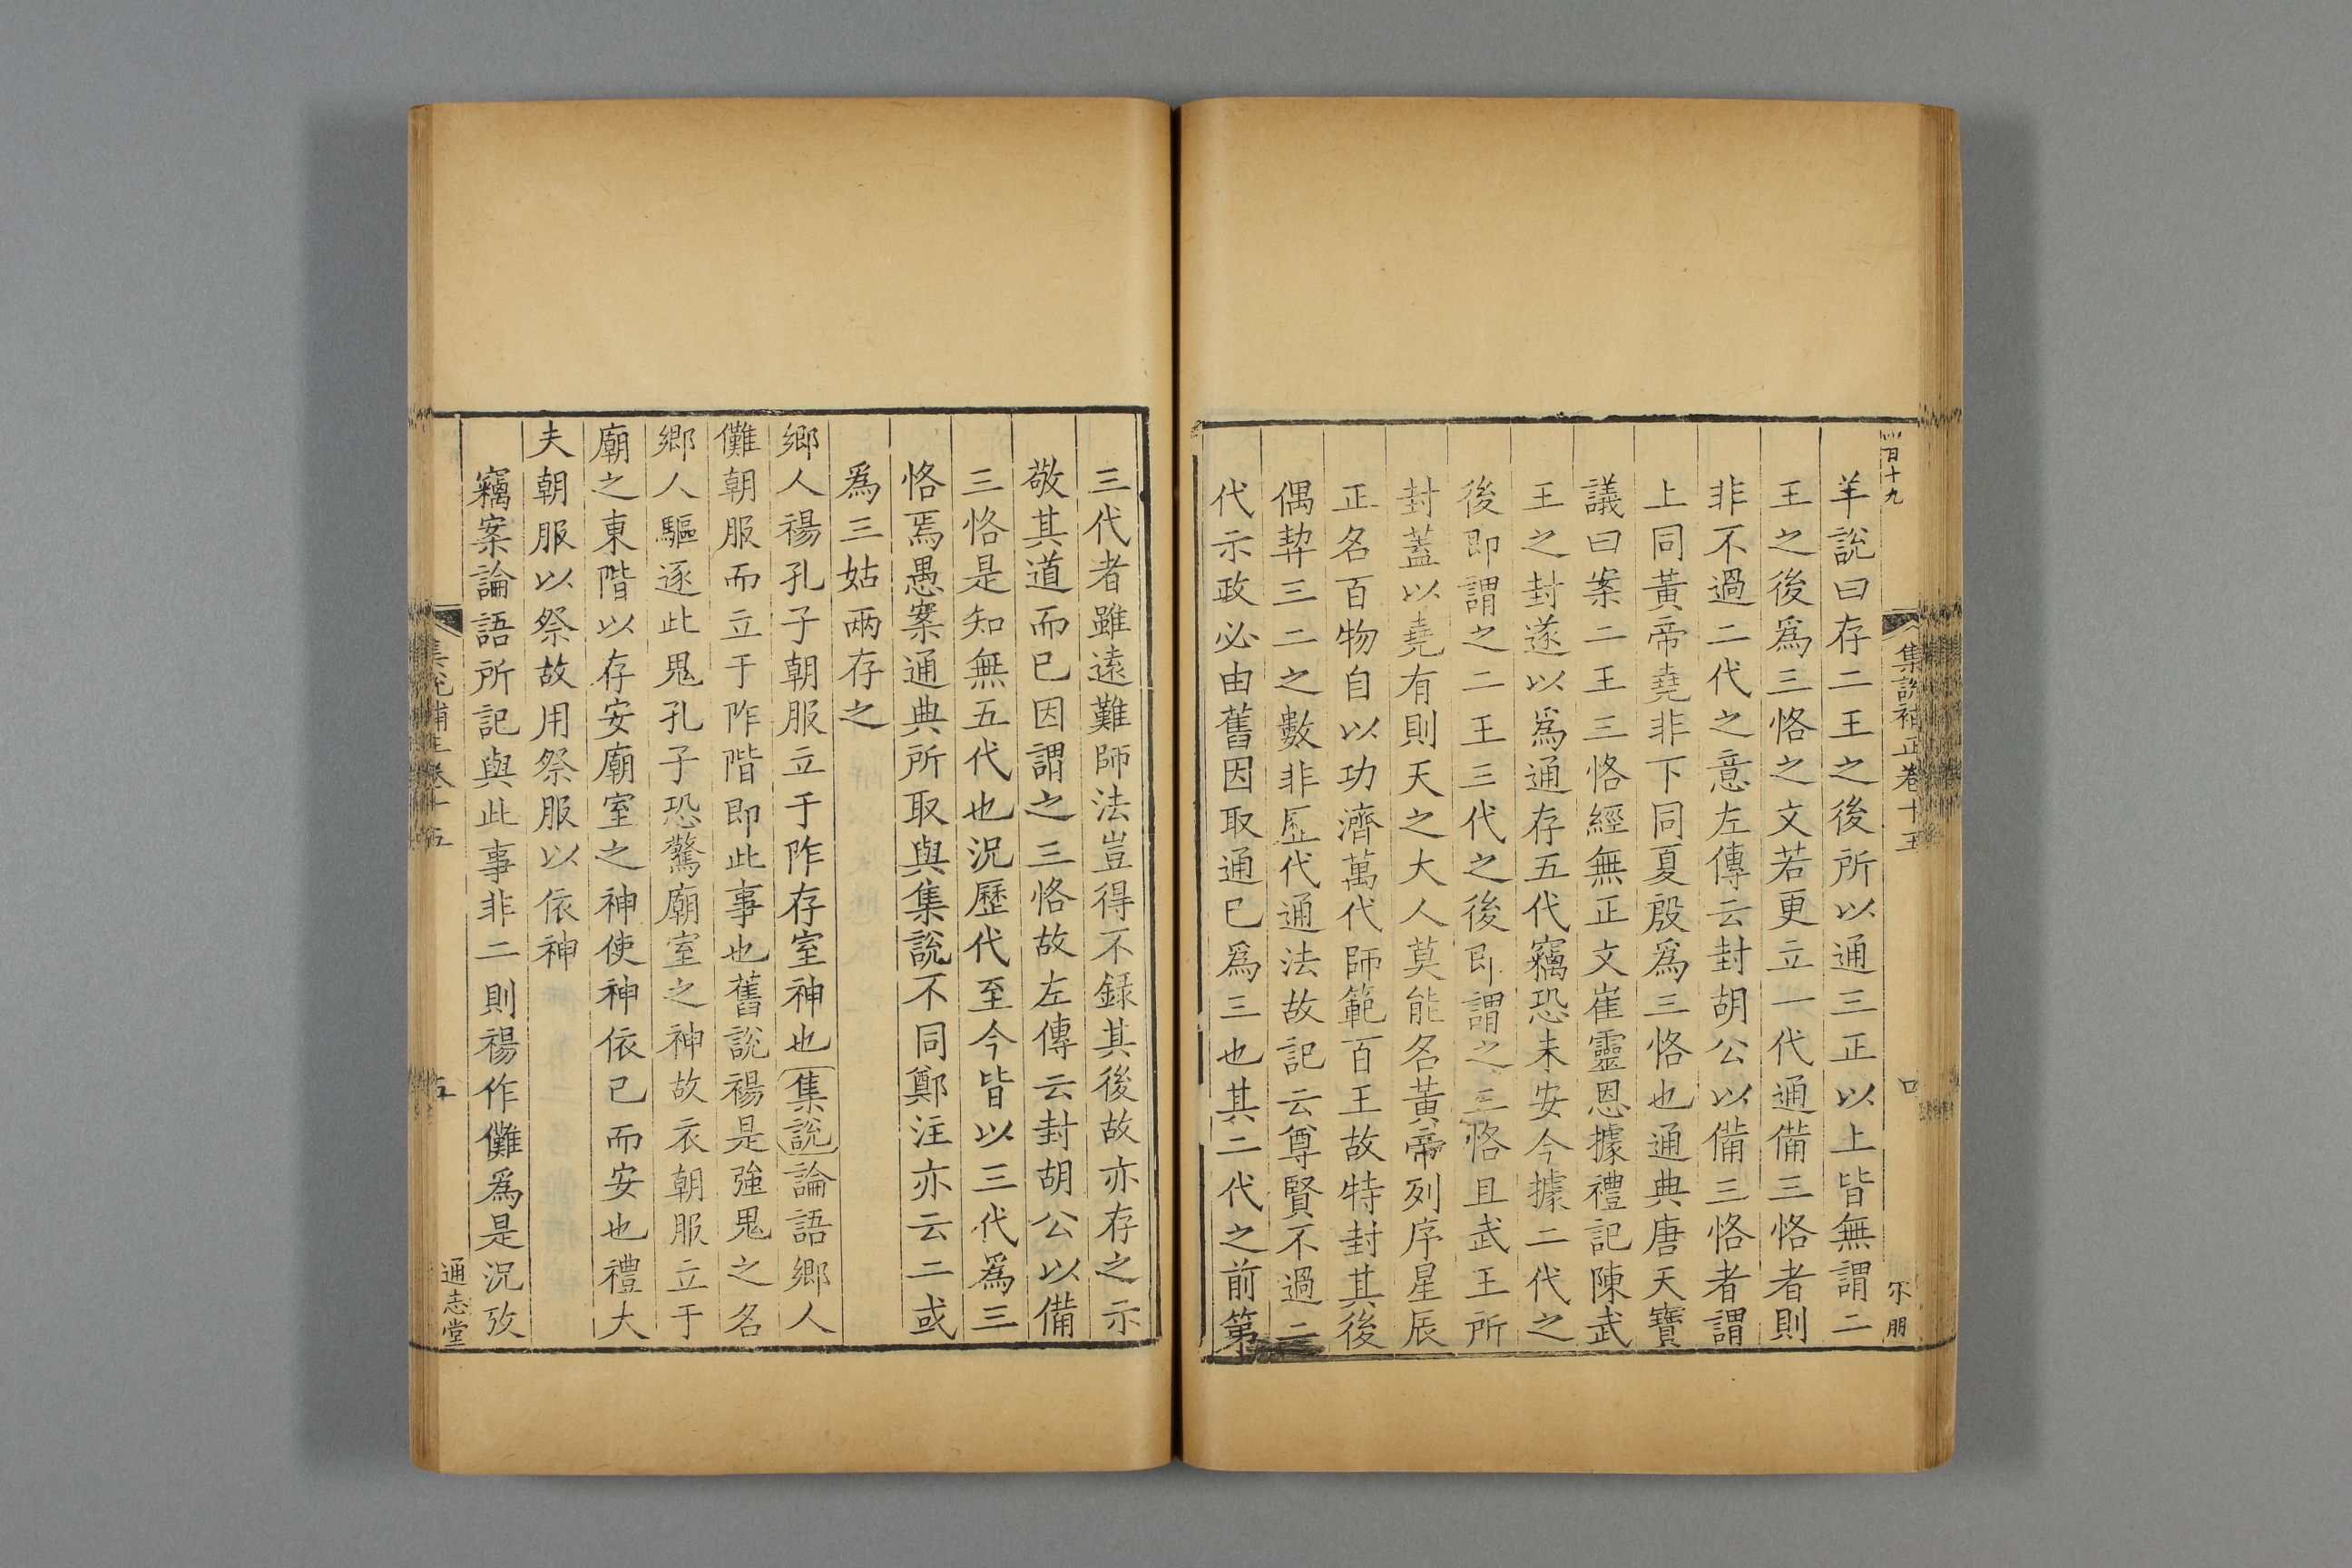 羊說曰存二王之後所以通三正以上皆無謂二
王之後爲三恪之文若更立一代通備三恪者則
非不過二代之意左傳云封胡公以備三恪者謂
上同黃帝堯非下同夏殷爲三恪也通典唐天寶
議曰案二王三恪經無正文崔靈恩據禮記陳武
王之封遂以爲通存五代竊恐未安今據二代之
後即謂之二王三代之後即謂之三恪且武王所
封蓋以堯有則天之大人莫能名黃帝列序星辰
正名百物自以功濟萬代師範百王故特封其後
偶契三二之數非歷代通法故記云尊賢不過二
代示政必由舊因取通已爲三也其二代之前第
三代者雖遠難師法豈得不録其後故亦存之示
敬其道而已因謂之三恪故左傳云封胡公以備
三恪是知無五代也況歷代至今皆以三代爲三
恪焉愚案通典所取與集說不同鄭注亦云二或
爲三姑兩存之
鄉人禓孔子朝服立于阼存室神也集說論語鄉人
儺朝服而立于阼階即此事也舊說禓是強鬼之名
鄉人驅逐此鬼孔子恐驚廟室之神故衣朝服立于
廟之東階以存安廟室之神使神依已而安也禮大
夫朝服以祭故用祭服以依神
竊案論語所記與此事非二則禓作儺爲是況攷
集說補正卷十五
五
通志堂